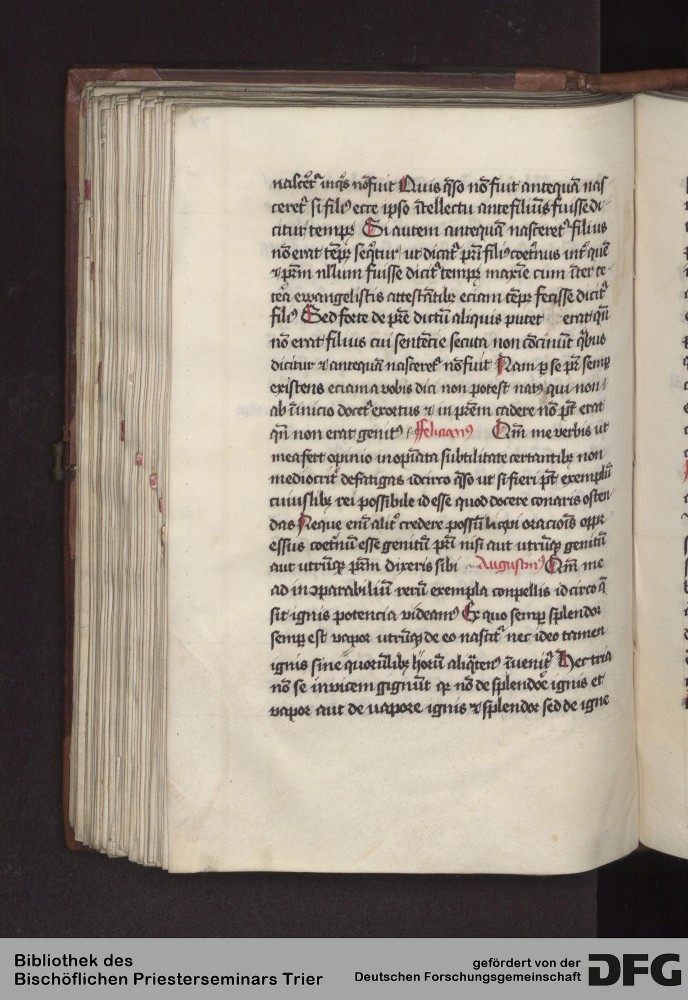 nascet᷑ inq̄s nō fuit Quis q̄so nō fuit antequā nas
ceret᷑ si filiꝰ ecce ipso ītellectu ante filiū fuisse di
citur tempꝰ Si autem antequā nasceret᷑ filius
nō erat tēpꝰ seq̄tur ut dicat᷑ pr̄i filiꝰ coet̄nus int᷑ quē
⁊ pr̄em nllum fuisse dicit᷑ tempꝰ maxīe cum īter ce
tēa ewangelistis attestātibꝫ eciam tēpꝰ fecisse dicit᷑
filiꝰ Sed forte de pr̄e dictū aliquis putet erat qn̄
nō erat filius cui sentēcie secuta non cōcinūt q̄bus
dicitur ⁊ antequā nasceret᷑ nō fuit Nam ꝑ se pr̄ semꝑ
existens eciam a vobis dici non potest natꝰ qui non
ab īinicio docet᷑ exortus ⁊ in pr̄em cadere nō pt̄ erat
qn̄ non erat genitꝰ Felicianꝰ Qm̄ me verbis ut
mea fert opinio inopīata subtilitate certantibꝫ non
mediocrit᷑ defatigas idcirco q̄so ut si fieri pt̄ exemplū
cuiuslibꝫ rei possibile id esse quod docere conaris osten
das Neque enī alit᷑ credere possū hꝰ cpi oracioīs oppr
essus coet̄nū esse genitū pr̄i nisi aut utrūqꝫ genitū
aut utrūqꝫ pr̄em dixeris sibi Augustinꝰ Qm̄ me
ad inꝯparabiliū rerū exempla conpellis idcirco a
sit ignis potencia videamꝰ Ex quo semꝑ splendor
semꝑ est vapor utrūqꝫ de eo nascit᷑ nec ideo tamen
ignis sine quorūlibꝫ horū aliq̄tenꝰ īuenit᷑ Hec tria
nō se invicem gignūt qꝛ nō de splendoē ignis et
vapor aut de vapore ignis ⁊ splendor sed de igne
Bibliothek des
Bischöflichen Priesterseminars Trier
gefördert von der
Deutschen Forschungsgemeinschaft
DFG